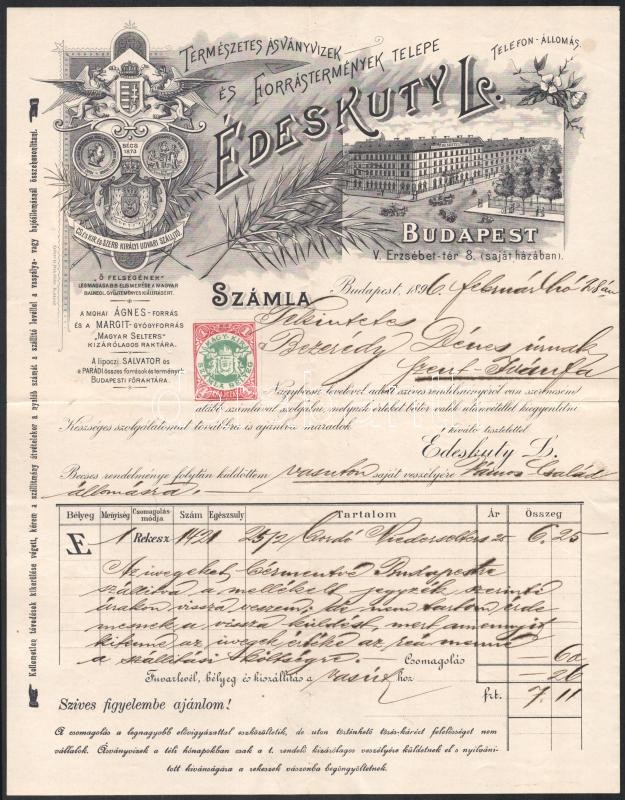 TERMÉSZETES ÁSVÁNYVIZEK
ÉS FORRÁSTERMÉNYEK TELEPE
TELEFON-ÁLLOMÁS.
ÉDESKUTY L.
BÉCS
1873
CS. ÉS KIR. ÉS SZERB KIRÁLYI UDVARI SZÁLLÍTÓ
BUDAPEST
V. Erzsébet-tér 8. (saját házában).
"Ő FELSÉGÉNEK"
LEGMAGASABB ELISMERÉSE A MAGYAR
BALNEOL. GYŰJTEMÉNYES KIÁLLITÁSÉRT.
A MOHAI ÁGNES-FORRÁS
ÉS A MARGIT-GYÓGYFORRÁS
"MAGYAR SELTERS"
KIZÁRÓLAGOS RAKTÁRA.
A lipóczi SALVATOR és
a PARÁDI összes források és terményr.
BUDAPESTI FŐRAKTÁRA.
SZÁMLA
Budapest, 1896. február hó 28án
Tekintetes
Bezerédy Dénes úrnak
Szent Ivánfa
Nagybecsű levelével adott szíves rendelményéről van szerencsém
alább számlával szolgálni, melynek értékét bátor valék utánvétellel kiegyenlítni
Készséges szolgálatomat továbbra is ajánlva maradok
kiváló tisztelettel
Édeskuty L.
Becses rendelménye folytán küldöttem vasuton saját veszélyére Vámos Család
állomásra.
Bélyeg Menyiség Csomagolás módja Szám Egészsuly Tartalom Ár Összeg
É 1 Rekesz 1421 25/2 Cordó Niederselters 25 6.25
Az üvegeket bérmentve Budapestre
szállitva a mellékelt jegyzék szerinti
árakon vissza veszem, de nem tartom érde
mesnek a vissza küldést, mert amennyit
kitenne az üvegek értéke az reá menne
a szállitási költségre.
Csomagolás – 60
Fuvarlevél, bélyeg és kiszállítás a vasut hoz – 26
frt. 7.11
Szives figyelembe ajánlom!
A csomagolás a legnagyobb elővigyázattal eszközöltetik, de uton történhető törés-kárért felelősséget nem
vállalok. Ásványvizek a téli hónapokban csak a t. rendelő kizárólagos veszélyére küldetnek el s nyilváni-
tott kivánságára a rekeszek vászonba begöngyöltetnek.
Kellemetlen tévedések kikerülése végett, kérem a szállítmány átvételekor a nyalób számát a szállító levéllel a vaspálya- vagy hajóállomásnál összehasonlítani.